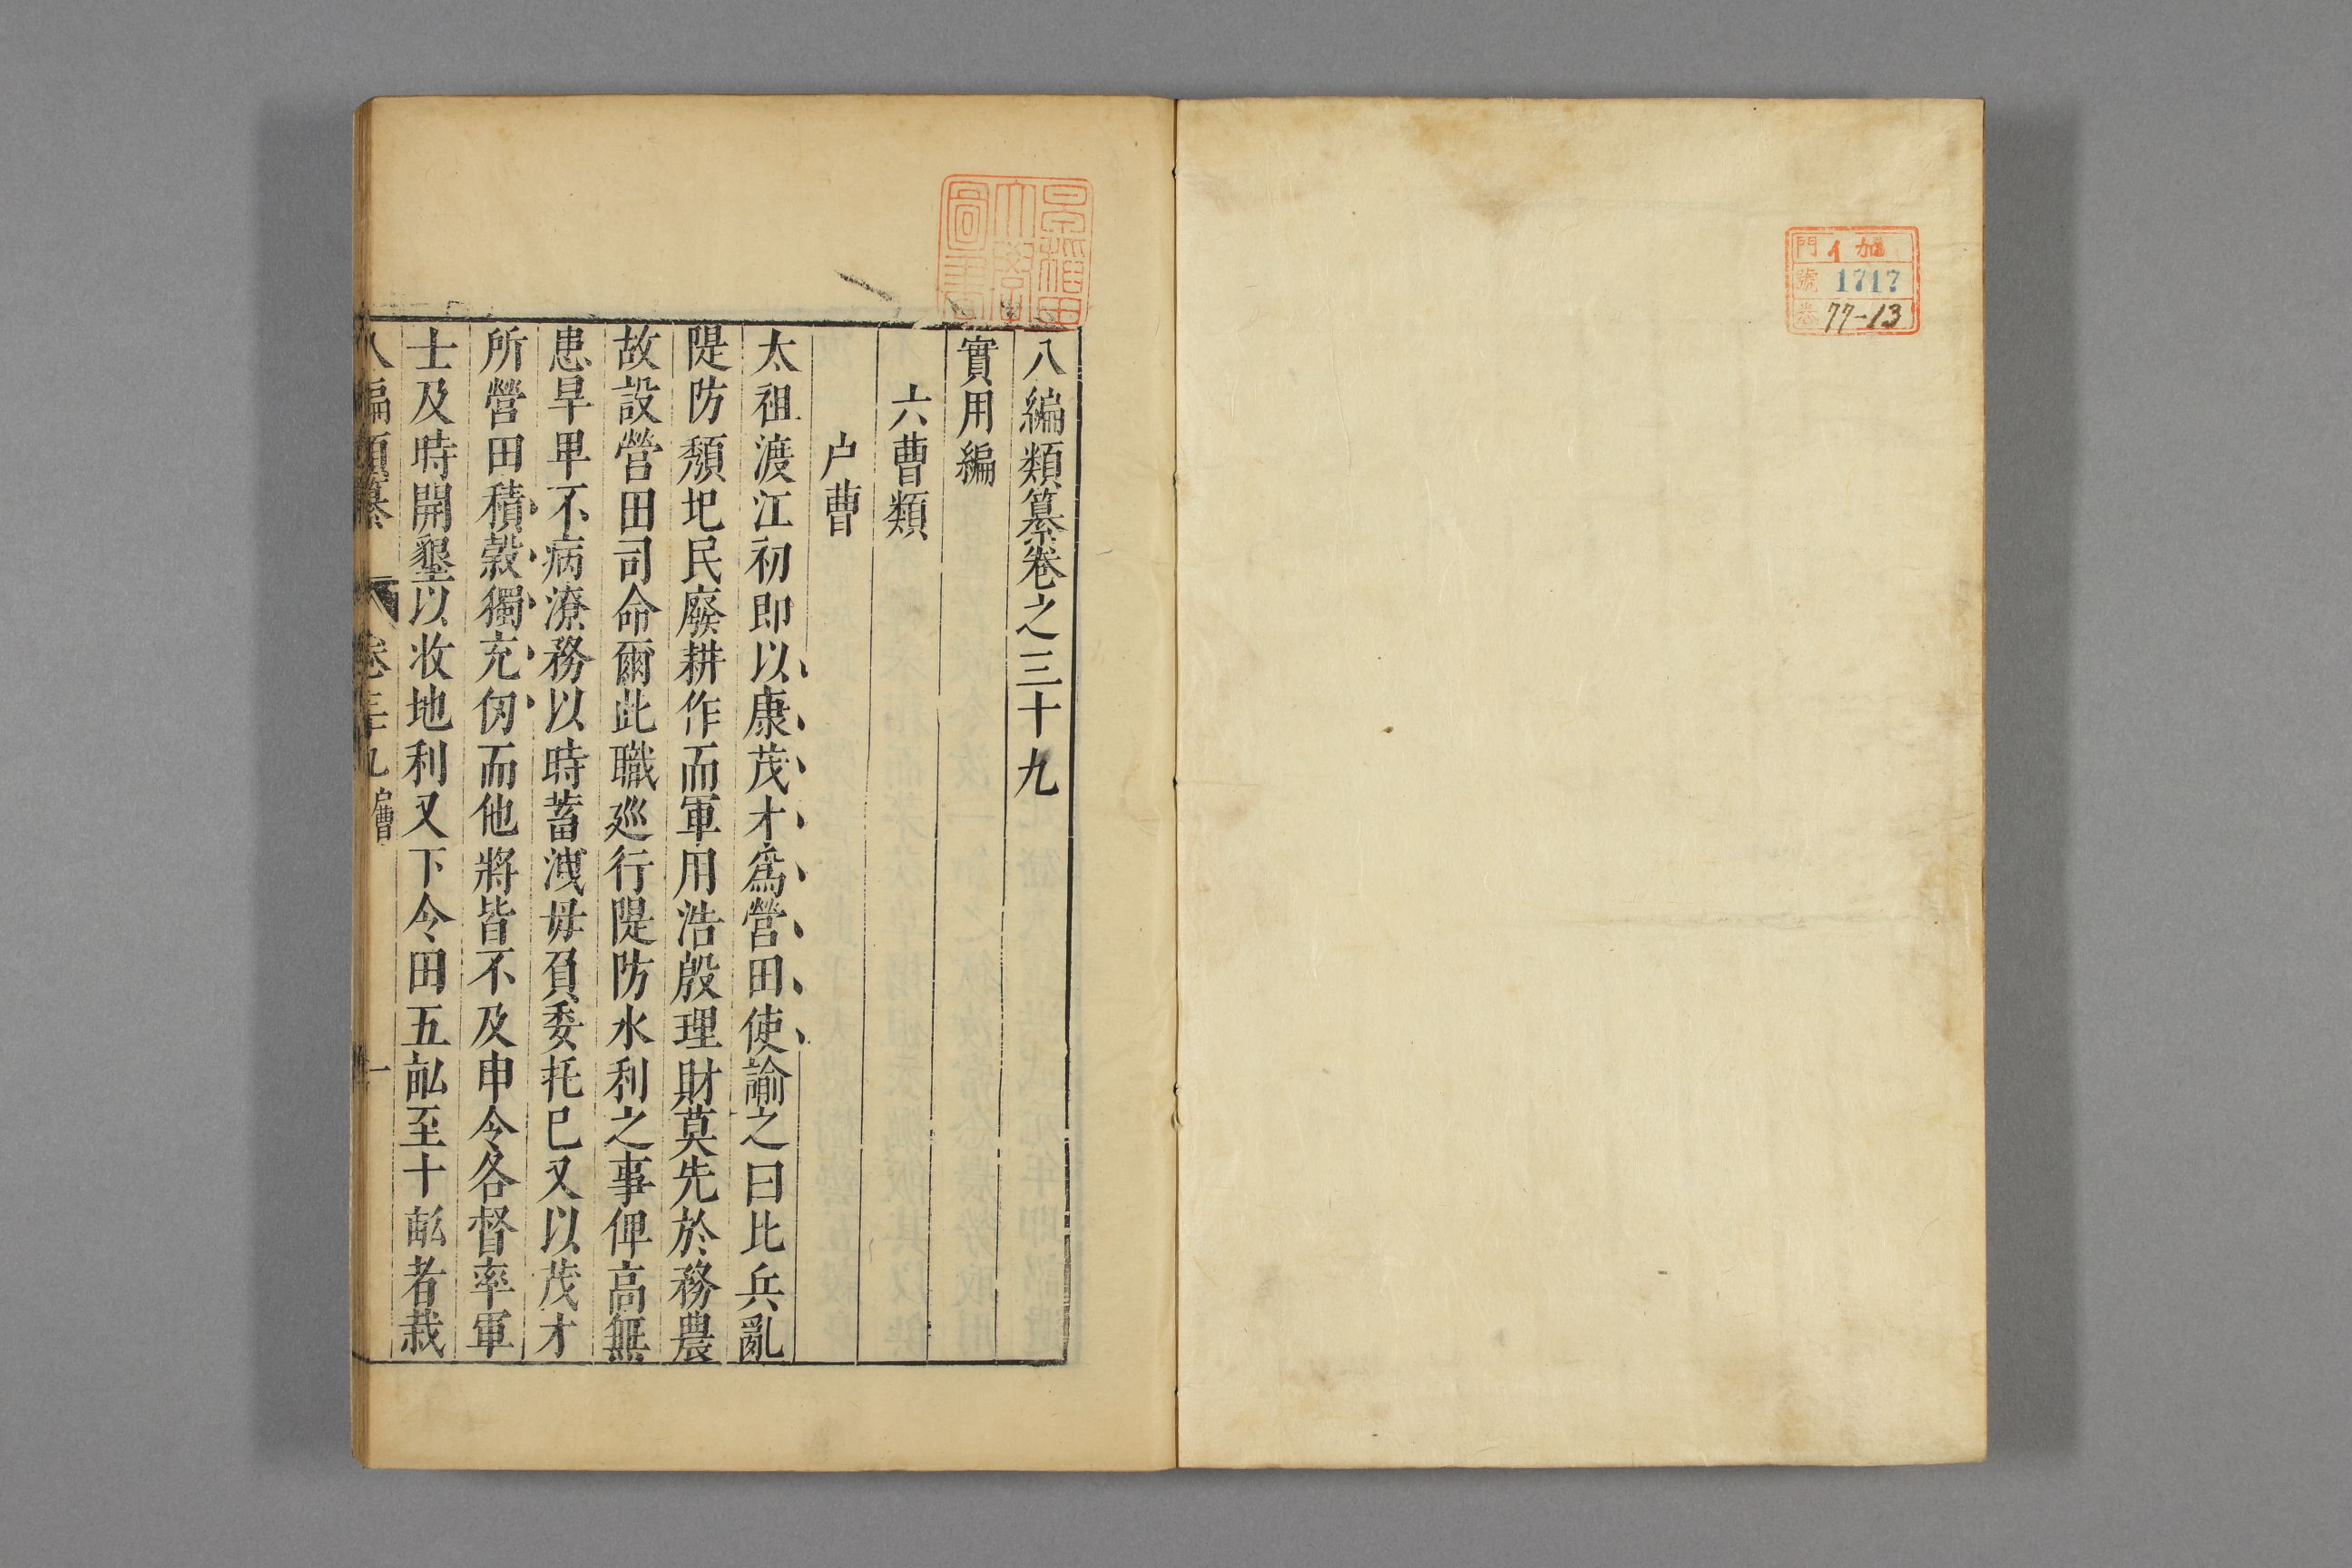 門 イ 加
號 1717
卷 77-13
早稻田
大學
圖書
八編類纂卷之三十九
實用編
六曹類
户曹
太祖渡江初即以康茂才爲營田使諭之曰比兵亂
隄防頽圯民廢耕作而軍用浩殷理財莫先於務農
故設營田司命爾此職廵行隄防水利之事俾高無
患旱卑不病潦務以時蓄洩毋負委托巳又以茂才
所營田積穀獨充仞而他將皆不及申令各督率軍
士及時開墾以收地利又下令田五畝至十畝者栽
八編類纂 卷三十九 户曹 一